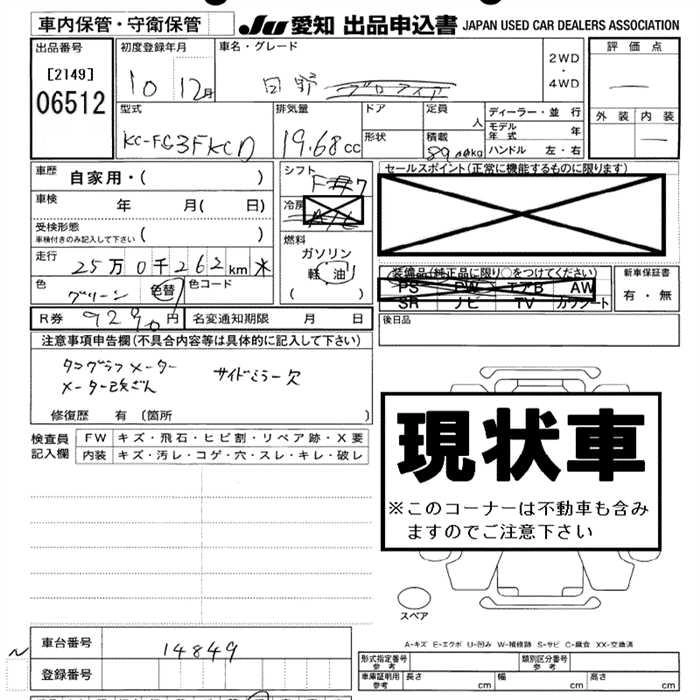 車内保管・守衛保管
JU 愛知 出品申込書 JAPAN USED CAR DEALERS ASSOCIATION
出品番号
[2149]
06512
初度登録年月
10 12月
車名・グレード
日野
2WD
・
4WD
評価点
外装 内装
型式
KC-FG3FKCD
排気量
19.68cc
ドア
形状
定員
人
積載
kg
ディーラー・並行
モデル年式 年
ハンドル 左・右
車歴
自家用・( )
車検 年 月( 日)
受検形態
車検付きのみ記入して下さい ( )
走行
25万0千262km
色
グリーン
色替
色コード
シフト
F 7
冷房
A/C
燃料
ガソリン
軽油
( )
セールスポイント(正常に機能するものに限ります)
装備品(純正品に限り○をつけてください)
PS PW エアB AW
SR ナビ TV カワシート
新車保証書
有・無
R券 9290円 名変通知期限 月 日
後日品
注意事項申告欄(不具合内容等は具体的に記入して下さい)
タコグラフメーター
メーター改ざん
サイドミラー欠
修復歴 有(箇所 )
検査員記入欄
FW キズ・飛石・ヒビ割・リペア跡・X要
内装 キズ・汚レ・コゲ・穴・スレ・キレ・破レ
現状車
※このコーナーは不動車も含み
ますのでご注意下さい
スペア
A-キズ E-エクボ U-凹み W-補修跡 S-サビ C-腐食 XX-交換済
車台番号
14849
登録番号
形式指定番号
参考
類別区分番号
参考
車庫証明用
参考
長さ cm 幅 cm 高さ cm